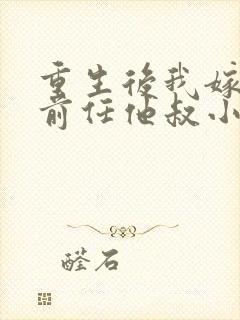 重生後我嫁
前任他叔小
醛石